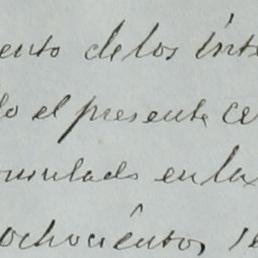 ento de los inte
do el presente ce
omulado en la
ochocientos se